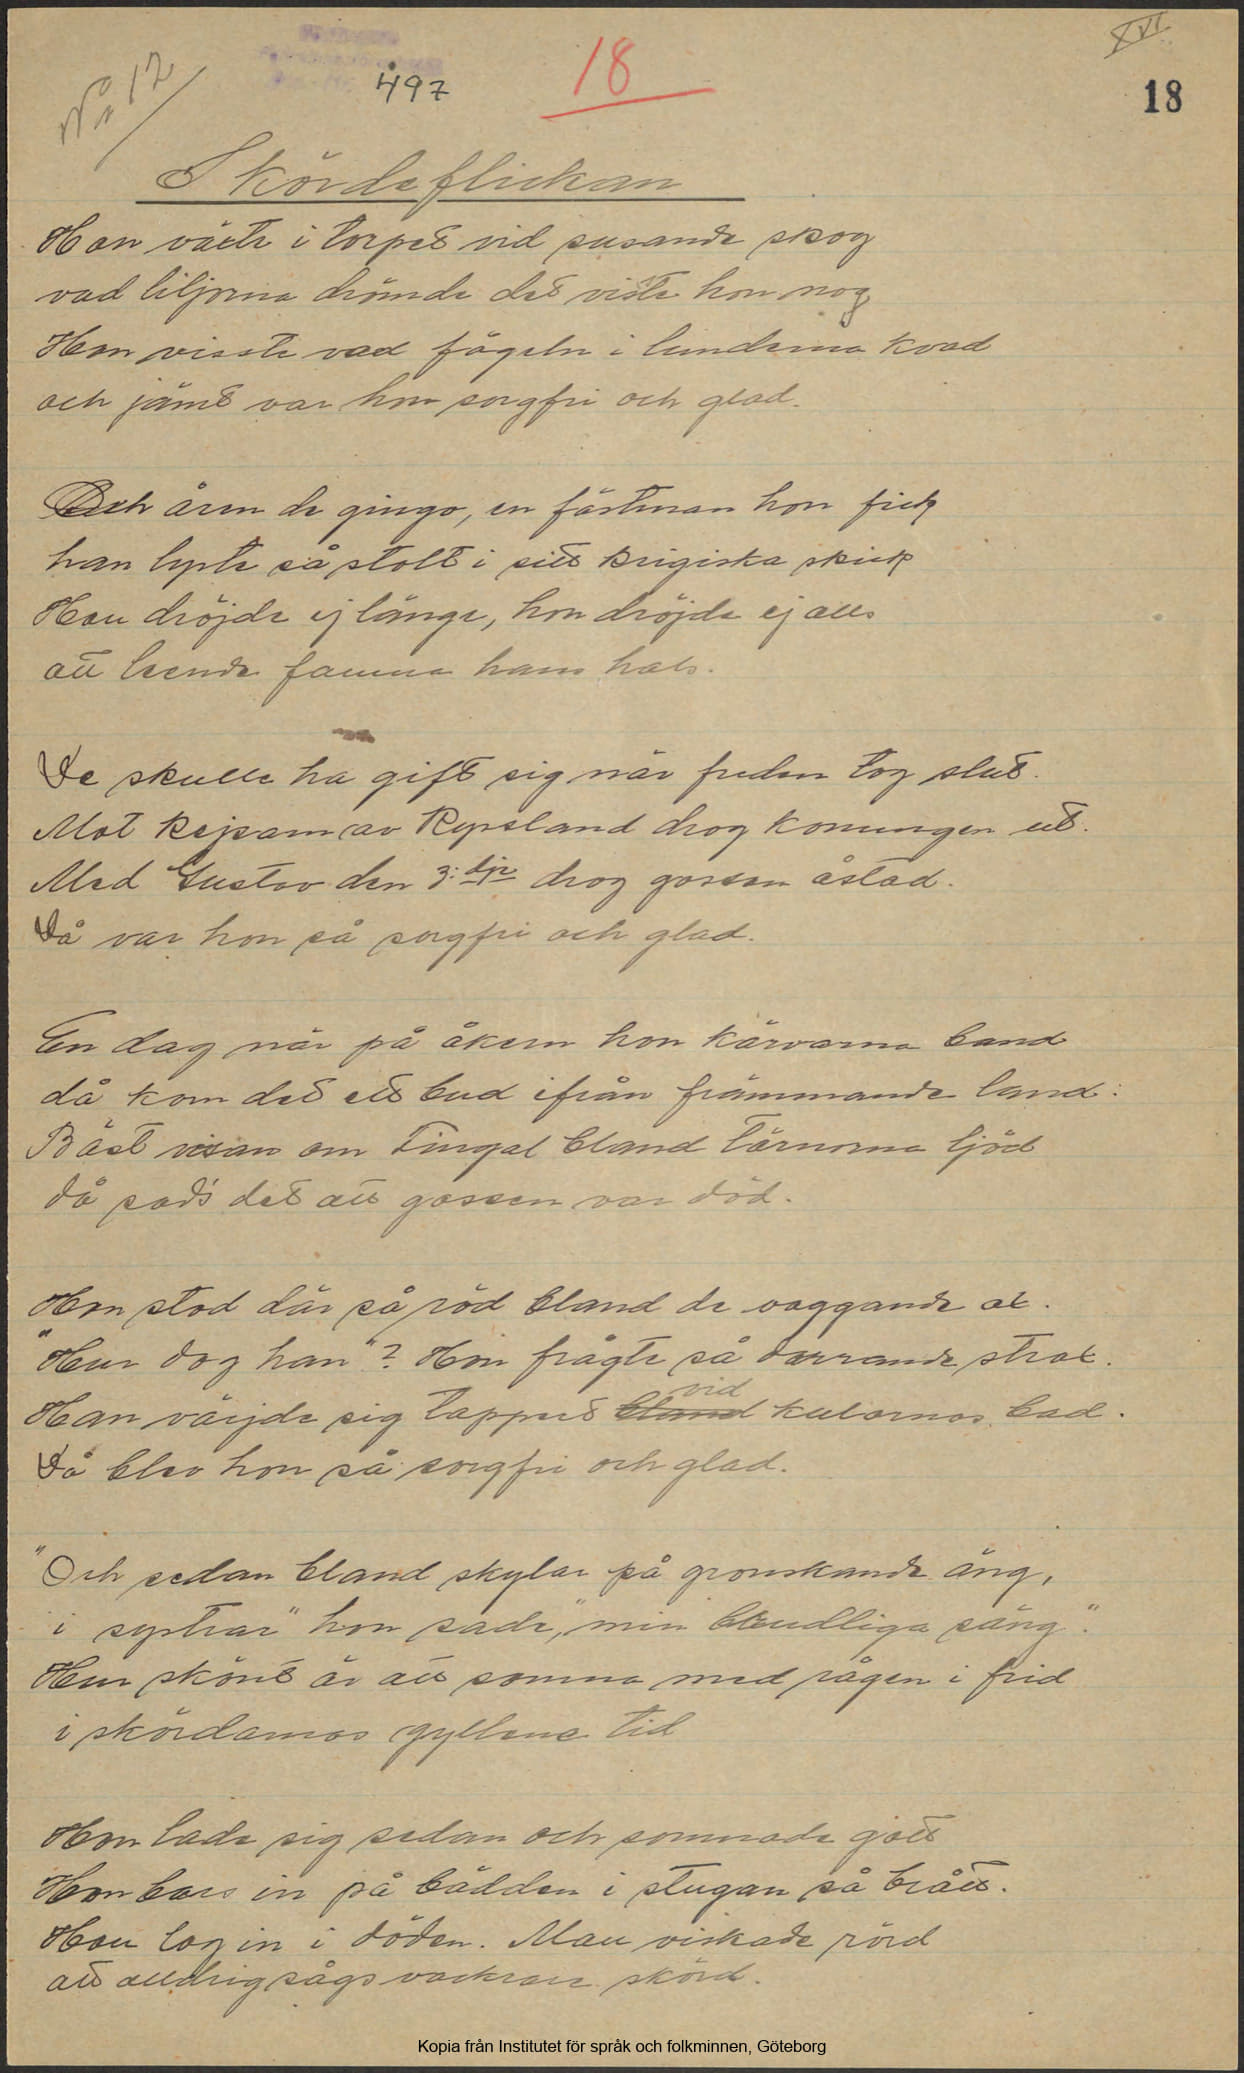 XVI
No 12
497
18
18
Skördeflickan
Hon växte i torpet vid susande skog
vad liljorna drömde det viste hon nog
Hon visste vad fågeln i lunderna kvad
och jämt var hon sorgfri och glad.
Och åren de gingo, en fästman hon fick
han lyste så stolt i sitt krigiska skick
Hon dröjde ej länge, hon dröjde ej alls
att leende famna hans hals.
De skulle ha gift sig när freden tog slut.
Mot kejsarn av Ryssland drog konungen ut.
Med Gustav den 3:dje drog gossen åstad.
Då var hon så sorgfri och glad.
En dag när på åkern hon kärvarna band
då kom det ett bud ifrån främmande land:
Bäst visan om Fingal bland tärnorna ljöd
då sad's det att gossen var död.
Hon stod där så röd bland de vaggande ax.
"Hur dog han"? Hon frågte så darrande strax.
Han värjde sig tappert bland vid kulornas bad.
Då blev hon så sorgfri och glad.
"Och sedan bland skylar på grönskande äng,
i systrar" hon sade, "min säng".
Hur skönt är att somna med rågen i frid
i skördarnas gyllene tid
Hon lade sig sedan och somnade gott
Hon bars in på bädden i stugan så brått.
Hon log in i döden. Man viskade rörd
att alldrig sågs vackrare skörd.
Kopia från Institutet för språk och folkminnen, Göteborg